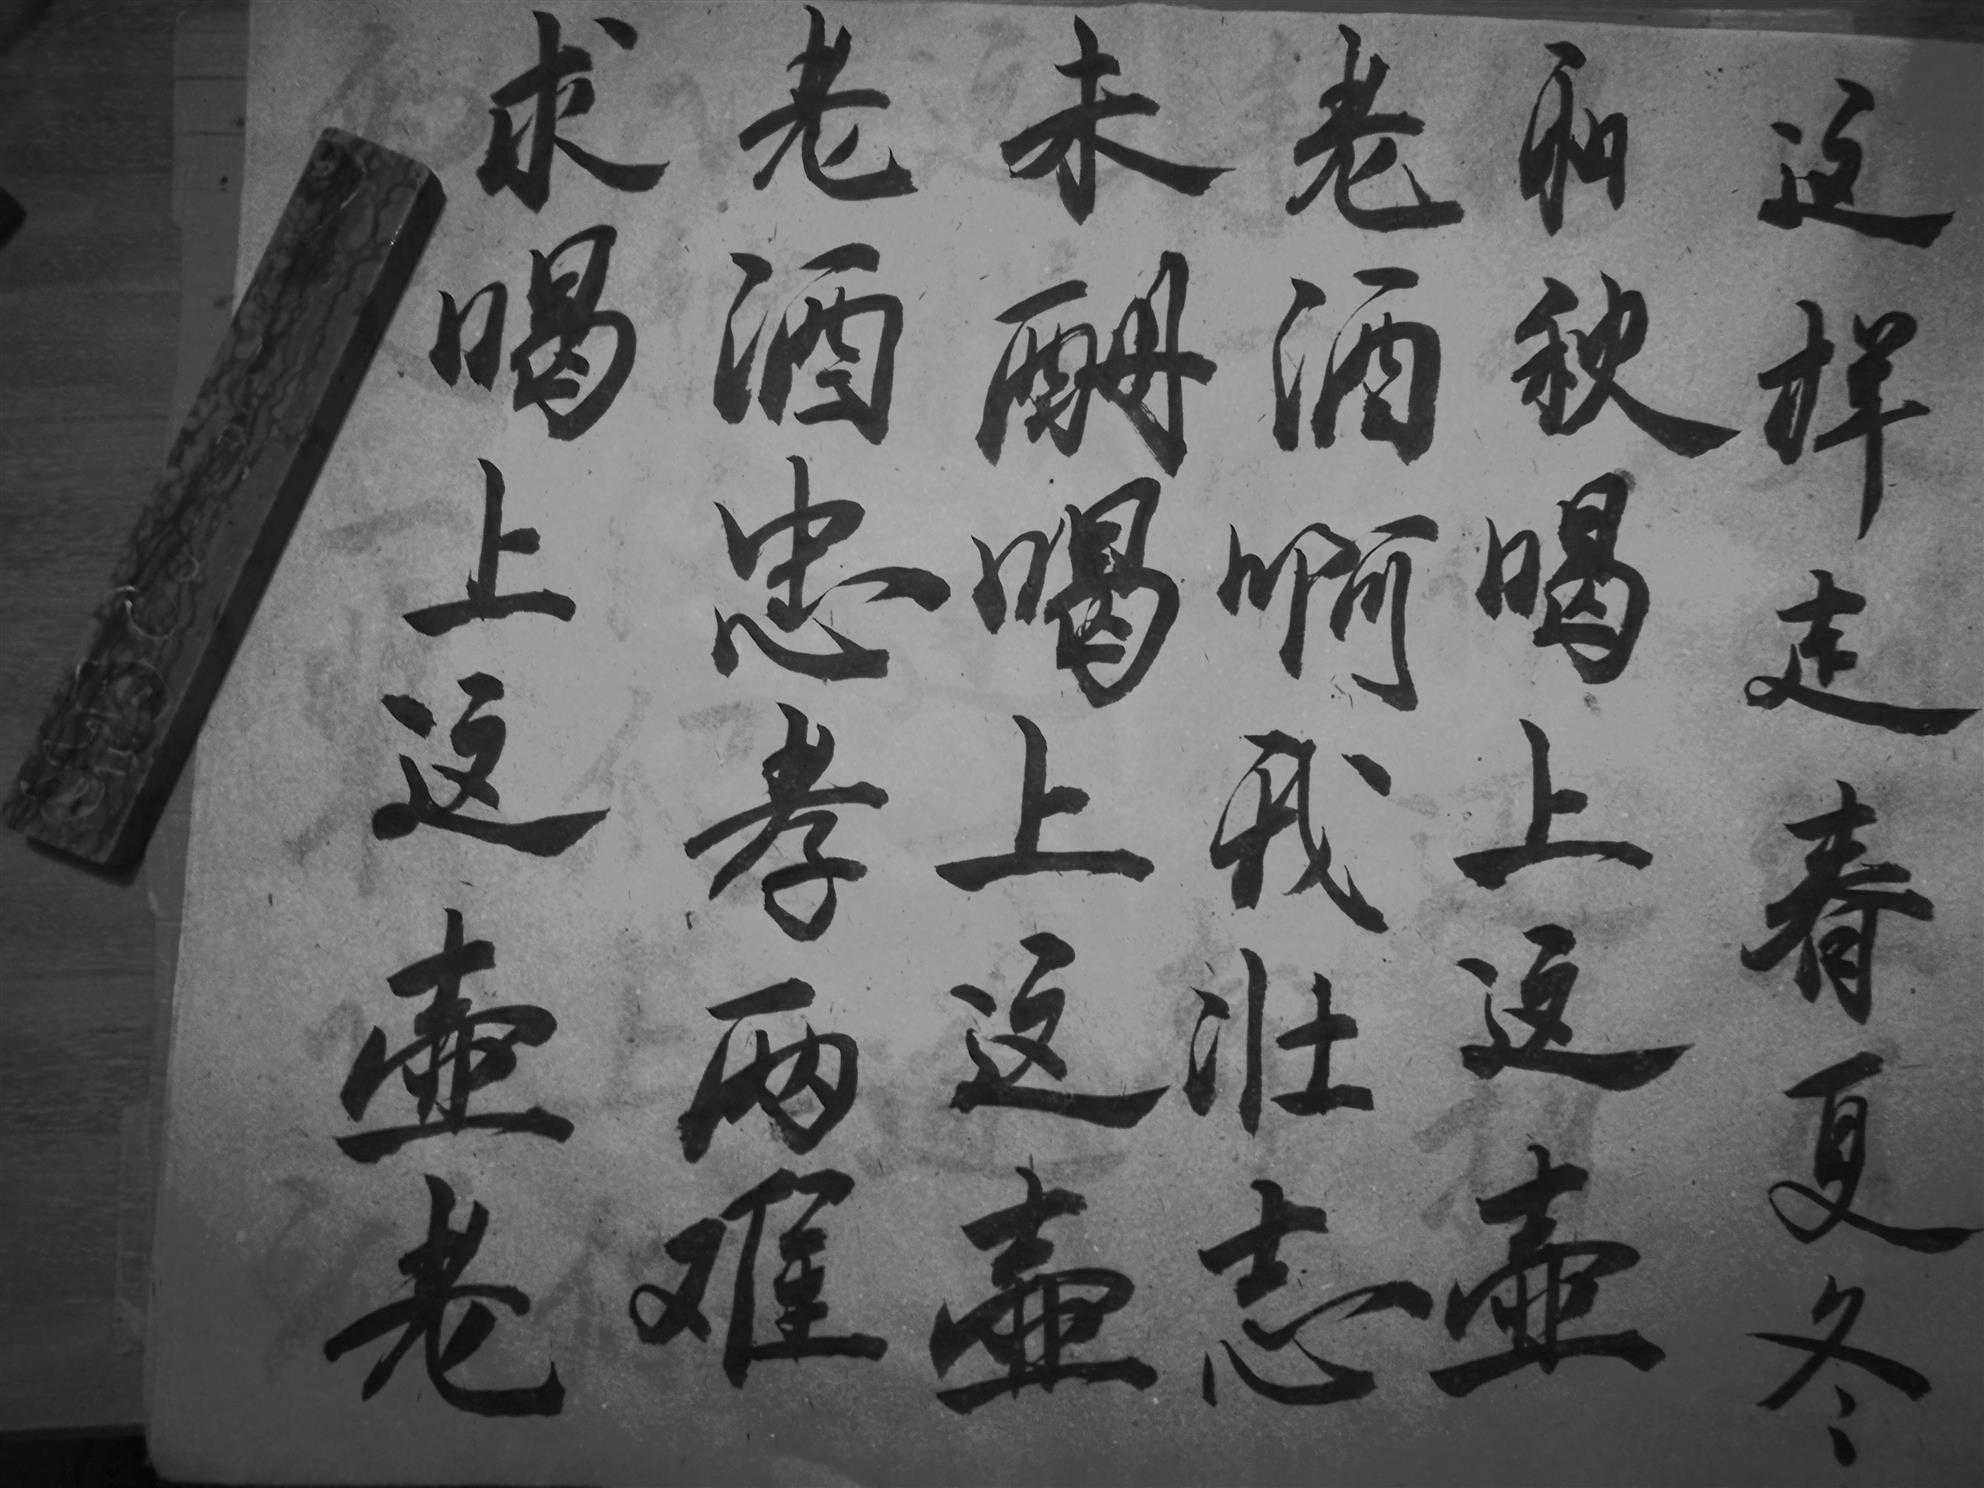 这样走春夏冬
和秋喝上这壶
老酒啊我壮志
未酬喝上这壶
老酒忠孝两难
求喝上这壶老